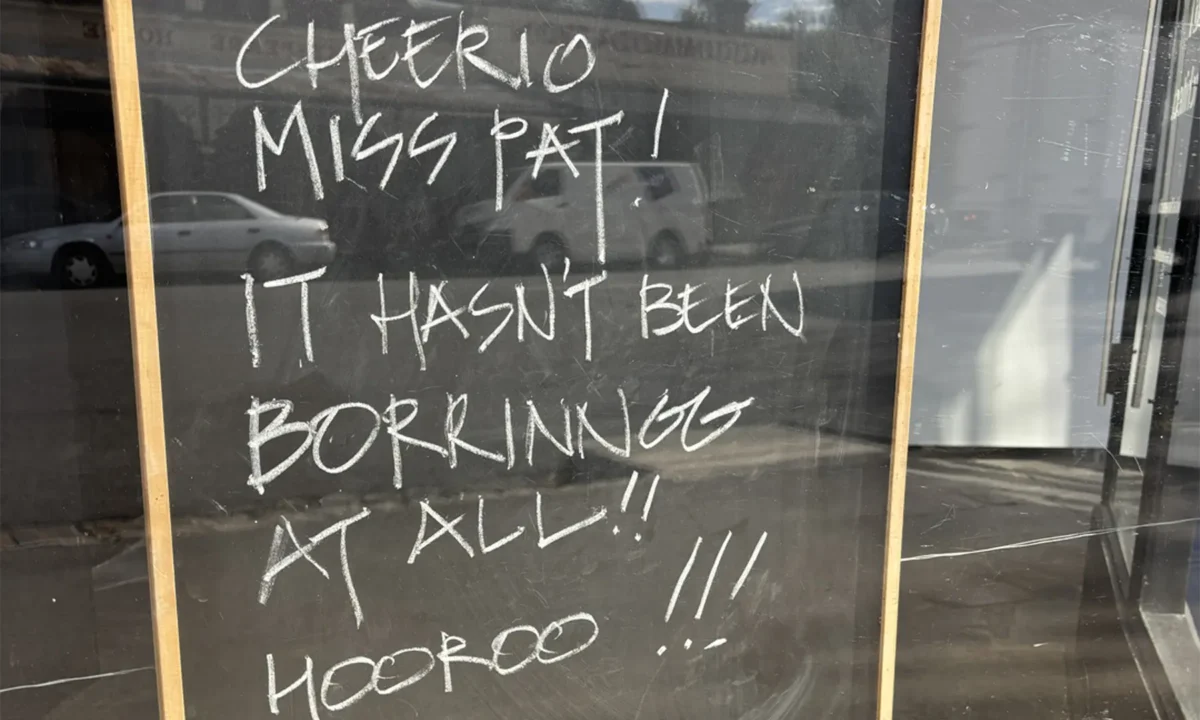 CHEERIO
MISS PAT!
IT HASN'T BEEN
BORRINNGG
AT ALL!!
HOOROO !!!